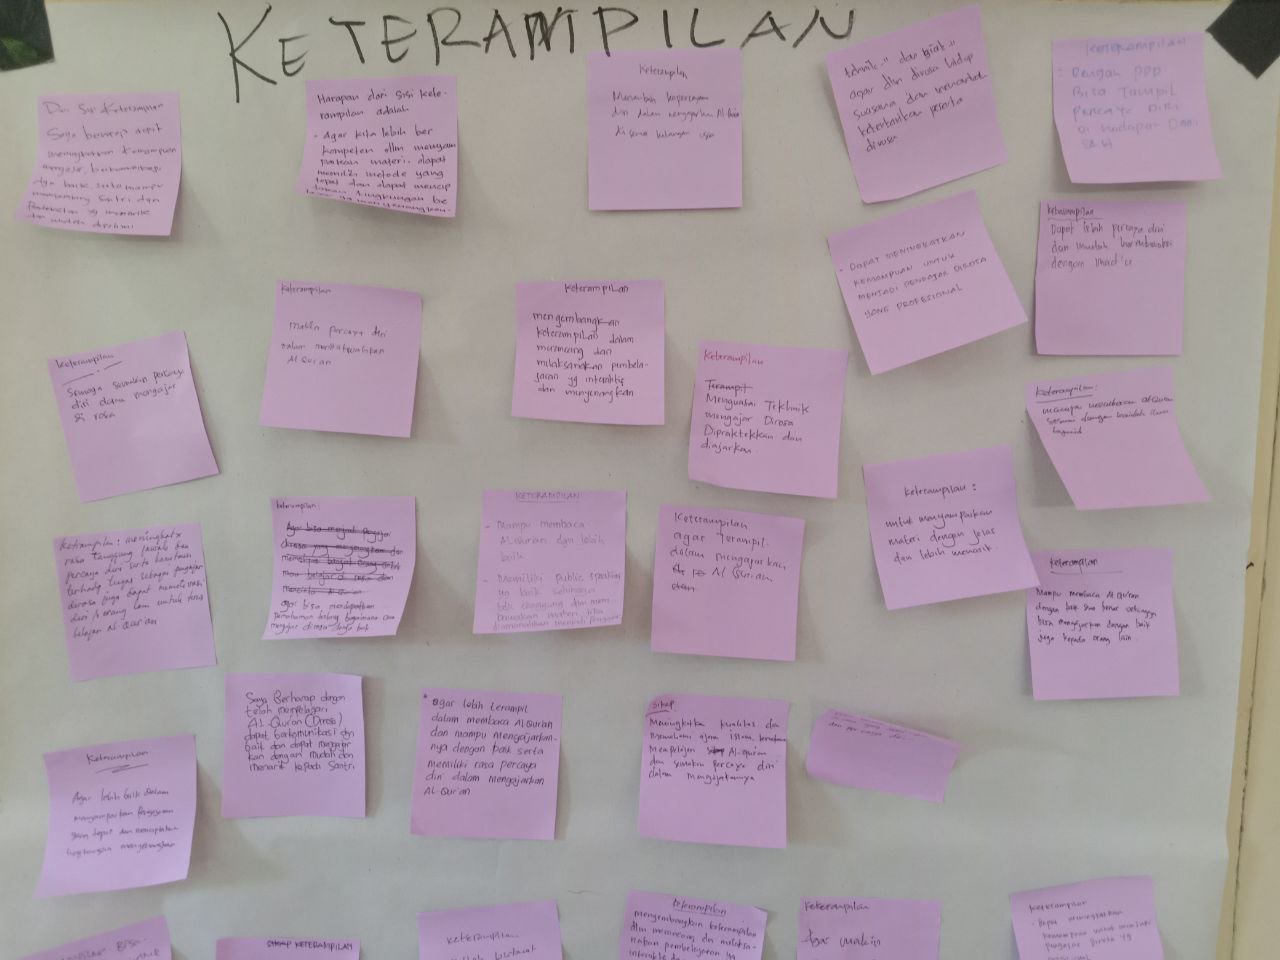 KETERAMPILAN
Dari Sisi Keterampilan
Saya berharap dapat
meningkatkan kemampuan
mengajar, berkomunikasi
dgn baik, serta mampu
membimbing santri dgn
Pendekatan yg menarik
dan mudah dipahami
Harapan dari sisi kete-
rampilan adalah
- Agar kita lebih ber
kompeten dlm menyam
paikan materi. dapat
memilih metode yang
tepat dan dapat mencip
takan lingkungan be
Keterampilan
Menambah kepercayaan
diri dalam mengajarkan Al-Qur'an
di semua kalangan usia
agar dlm dirosa hidup
suasana dan
peserta
dirosa
KETERAMPILAN
Dengan PDP
Bisa Tampil
PERCAYA DIRI
DI hadapan
- DAPAT MENINGKATKAN
KEMAMPUAN UNTUK
MENJADI PENGAJAR DIROSA
YANG PROFESIONAL
Keterampilan
Dapat lebih percaya diri
dan mudah berinteraksi
dengan Mad'u
Keterampilan
Makin percaya diri
dalam
Al Qur'an
Keterampilan
mengembangkan
keterampilan dalam
merancang dan
melaksanakan pembela-
jaran yg interaktif
dan menyenangkan
Keterampilan
Semoga semakin percaya
diri dalam mengajar
Keterampilan
Terampil
Menguasai Tekhnik
mengajar Dirosa
Dipraktekkan dan
diajarkan.
Keterampilan:
mampu membaca alQuran
sesuai dengan kaidah ilmu
tajwid
Keterampilan :
untuk menyampaikan
materi dengan jelas
dan lebih menarik.
Ketrampilan : meningkatx
rasa tanggung jawab dan
percaya diri serta
terhadp tugas sebagai pengajar
dirosa juga dapat memotivasi
diri / orang lain untuk terus
belajar al Qur'an
Keterampilan:
Agar bisa menjadi pengajar
dirosa yang menyenangkan dan
agar bisa mendapatkan
Pemahaman tentang bagaimana cara
mengajar dirosa dengan baik.
KETERAMPILAN
- Mampu membaca
AL Quran dgn lebih
baik
- Memiliki public speaking
yg baik sehingga
tdk canggung dlm mem-
bawakan materi, jika
diamanahkan menjadi pengajar
Keterampilan
agar terampil
dalam mengajarkan
Al Qur-an
Keterampilan
Mampu membaca Al Qur'an
dengan baik dan benar sehingga
bisa mengajarkan dengan baik
juga kepada orang lain.
Saya Berharap dengan
telah mempelajari
Al-Qur'an (Dirosa)
dapat berkomunikasi dgn
baik dan dapat mengajar
kan dengan mudah dan
menarik kepada Santri
* agar lebih terampil
dalam membaca Al Qur'an
dan mampu mengajarkan-
nya dengan baik serta
memiliki rasa percaya
diri dalam mengajarkan
Al-Qur'an
Sikap
Meningkatkan kualitas dan
Memahami ajaran islam terutama
Mempelajari Al-Qur'an
dan semakin percaya diri
dalam mengajarkannya
Keterampilan
Agar lebih baik dalam
menyampaikan pengajaran
yang tepat dan menciptakan
lingkungan menyenangkan
KETERAMPILAN
Keterampilan
Keterampilan
mengembangkan keterampilan
dlm merancang dan melaksa-
nakan pembelajaran yg
Keterampilan
Agar makin
Keterampilan
- Dapat meningkatkan
kemampuan untuk menjadi
pengajar dirosa yg